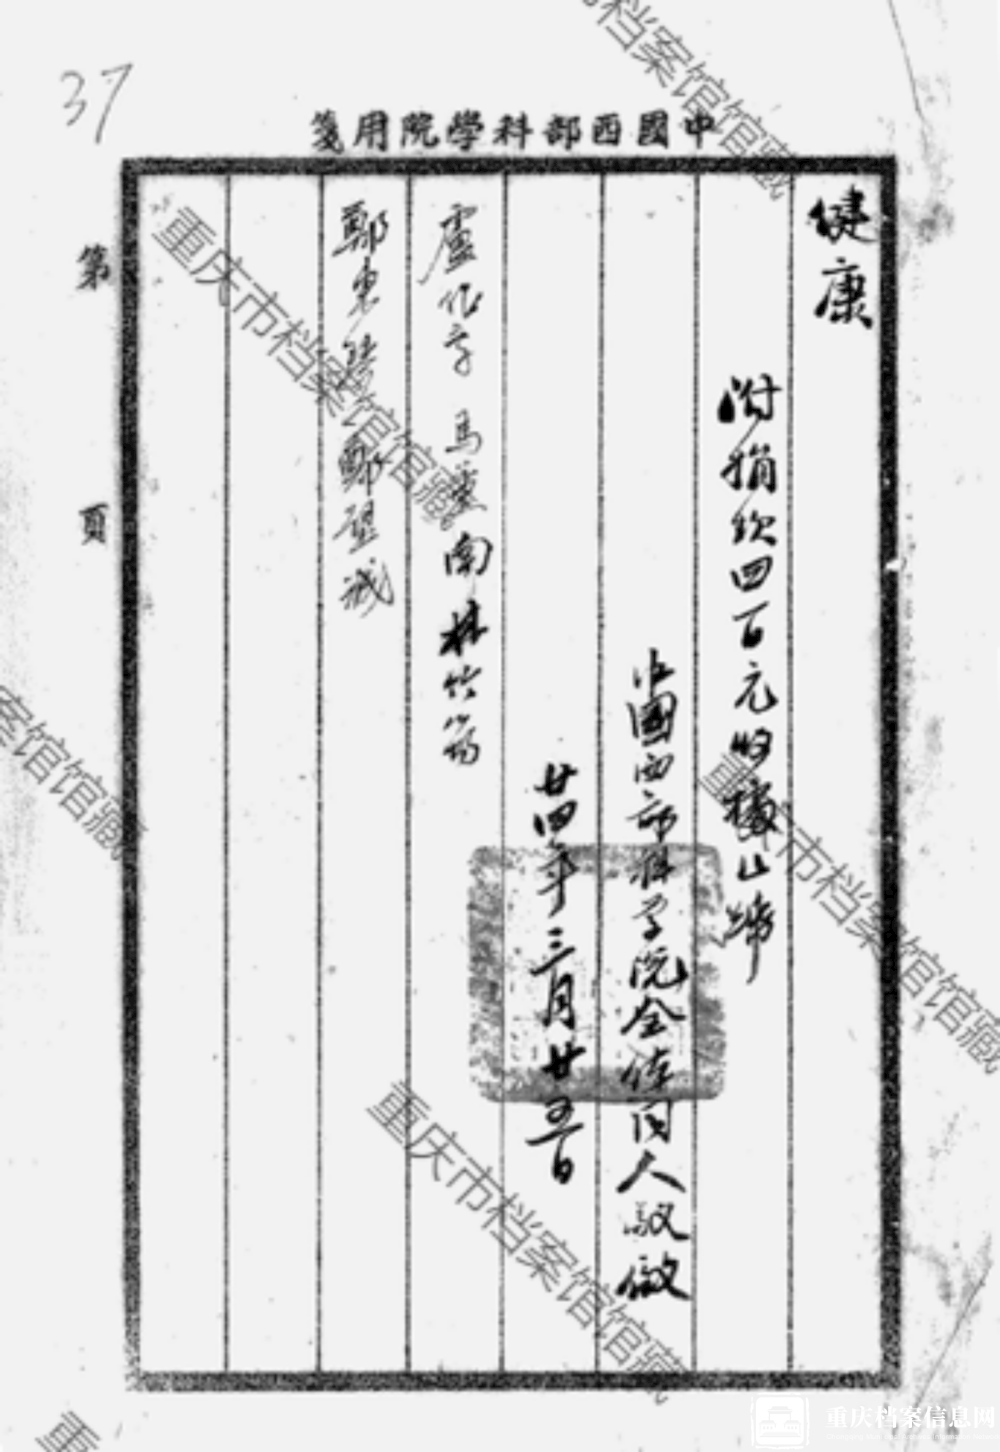 37
中國西部科學院用箋
健康
附捐欵四百元收據乙帋
中國西部科学院全体同人敬啟
廿四年三月廿五日
盧作孚 馬 南 林竹筠
鄭東 鄭璧成
第 頁
重庆市档案馆馆藏
重庆市档案馆馆藏
重庆市档案馆馆藏
重庆市档案馆馆藏
重庆档案信息网